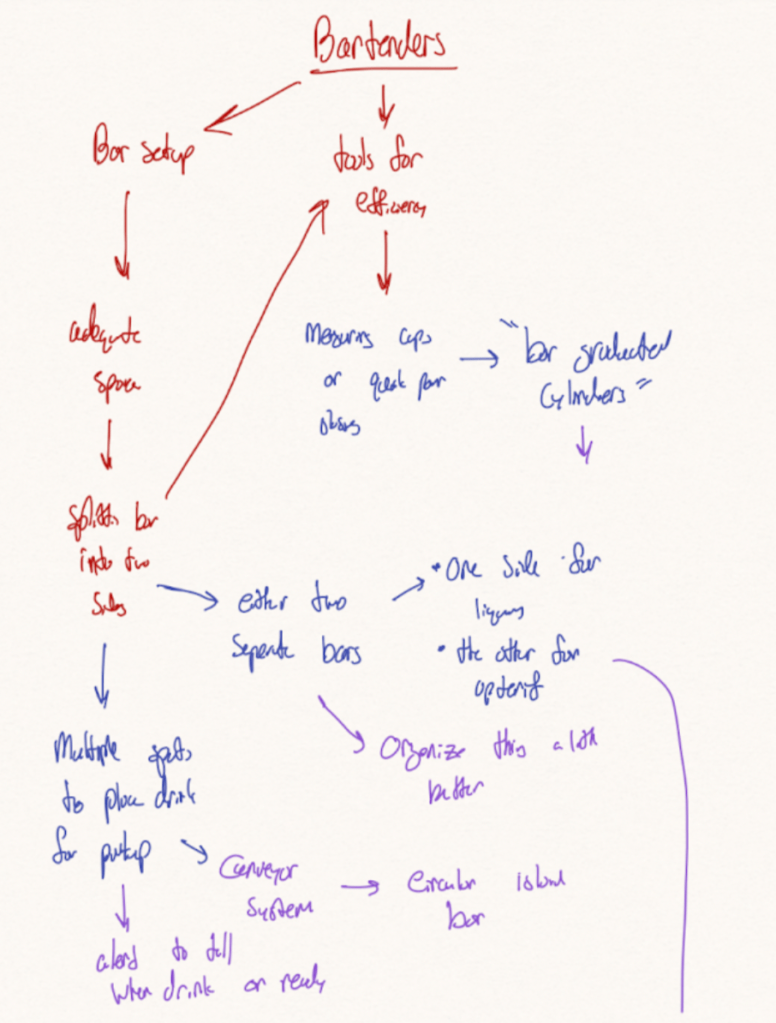 Bartenders
Bar setup
tools for
efficiency
adequate
space
Measuring cups
or quick pour
"bar graduated
Cylinders"
bar
into two
Sides
either two
Seperate bars
• One side for
liquors
• the other for
Organize this a lot
better
Multiple spots
to place drink
for pickup
Conveyor
System
Circular island
bar
to tell
when drink or ready